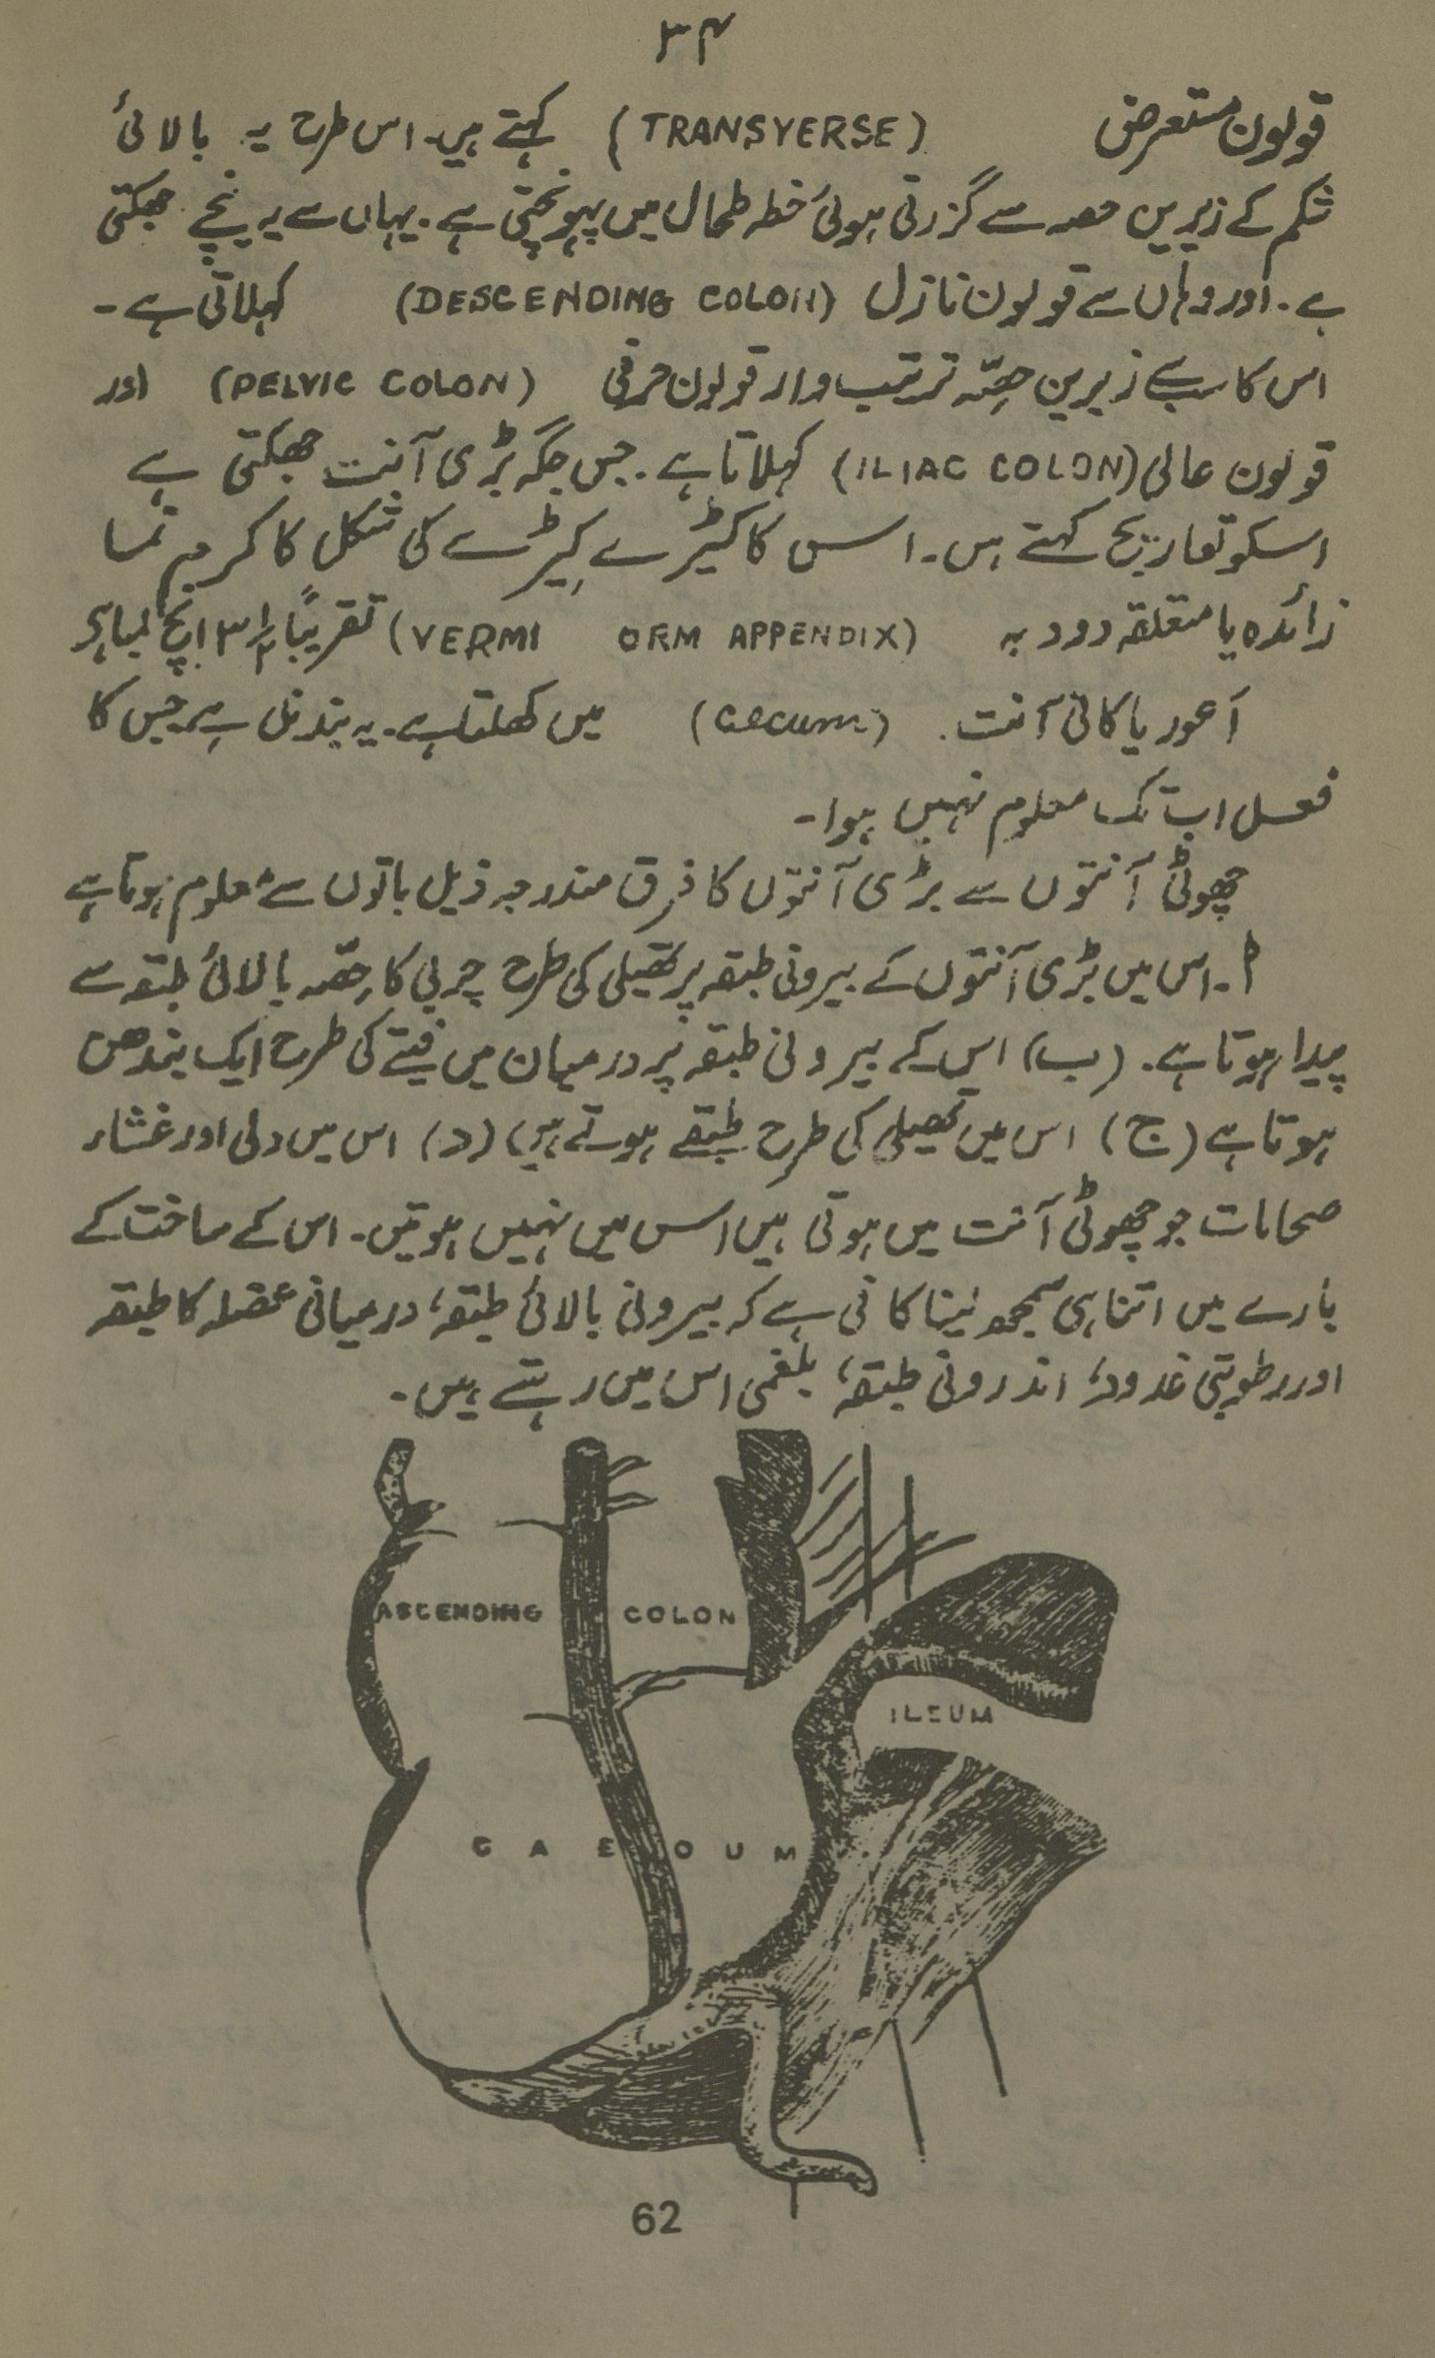 ۳۴
قولون مستعرض (TRANSYERSE) کہتے ہیں۔ اس طرح یہ بالائی
شکم کے زیریں حصہ سے گزرتی ہوئی خطہ طحال میں پہونچتی ہے۔ یہاں سے یہ نیچے جھکتی
ہے۔ اور وہاں سے قولون نازل (DESCENDING COLON) کہلاتی ہے۔
اس کا سب سے زیرین حصّہ ترتیب وار قولون حرقی (PELVIC COLON) اور
قولون عالی (ILIAC COLON) کہلاتا ہے۔ جس جگہ بڑی آنت جھکتی ہے
اسکو تعاریج کہتے ہیں۔ اس کا کیڑے کی شکل کا کرم نما
زائدہ یا متعلقہ دودیہ (VERMI ORM APPENDIX) تقریباً ۳½ انچ لمبا ہے
آعور یا کانی آنت۔ (Cecum) میں کھلتا ہے۔ یہ بند نلی ہے جس کا
فعل اب تک معلوم نہیں ہوا۔
چھوٹی آنتوں سے بڑی آنتوں کا فرق مندرجہ ذیل باتوں سے معلوم ہوتا ہے
ا۔ اس میں بڑی آنتوں کے بیرونی طبقہ پر تھیلی کی طرح چربی کا حِصّہ بالائی طبقہ سے
پیدا ہوتا ہے۔ (ب) اس کے بیرونی طبقہ پر درمیان میں فیتے کی طرح ایک بندھن
ہوتا ہے (ج) اس میں تھیلی کی طرح طبقے ہوتے ہیں (د) اس میں دلی اور غشاء
صحامات جو چھوٹی آنت میں ہوتی ہیں اس میں نہیں ہوتیں۔ اس کے ساخت کے
بارے میں اتنا ہی سمجھ لینا کافی ہے کہ بیرونی بالائی طبقہ، درمیانی عضلہ کا طبقہ
اور رطوبتی غدود، اندرونی طبقہ، بلغمی اس میں رہتے ہیں۔
ASCENDING COLON
ILEUM
CAE OUM
62